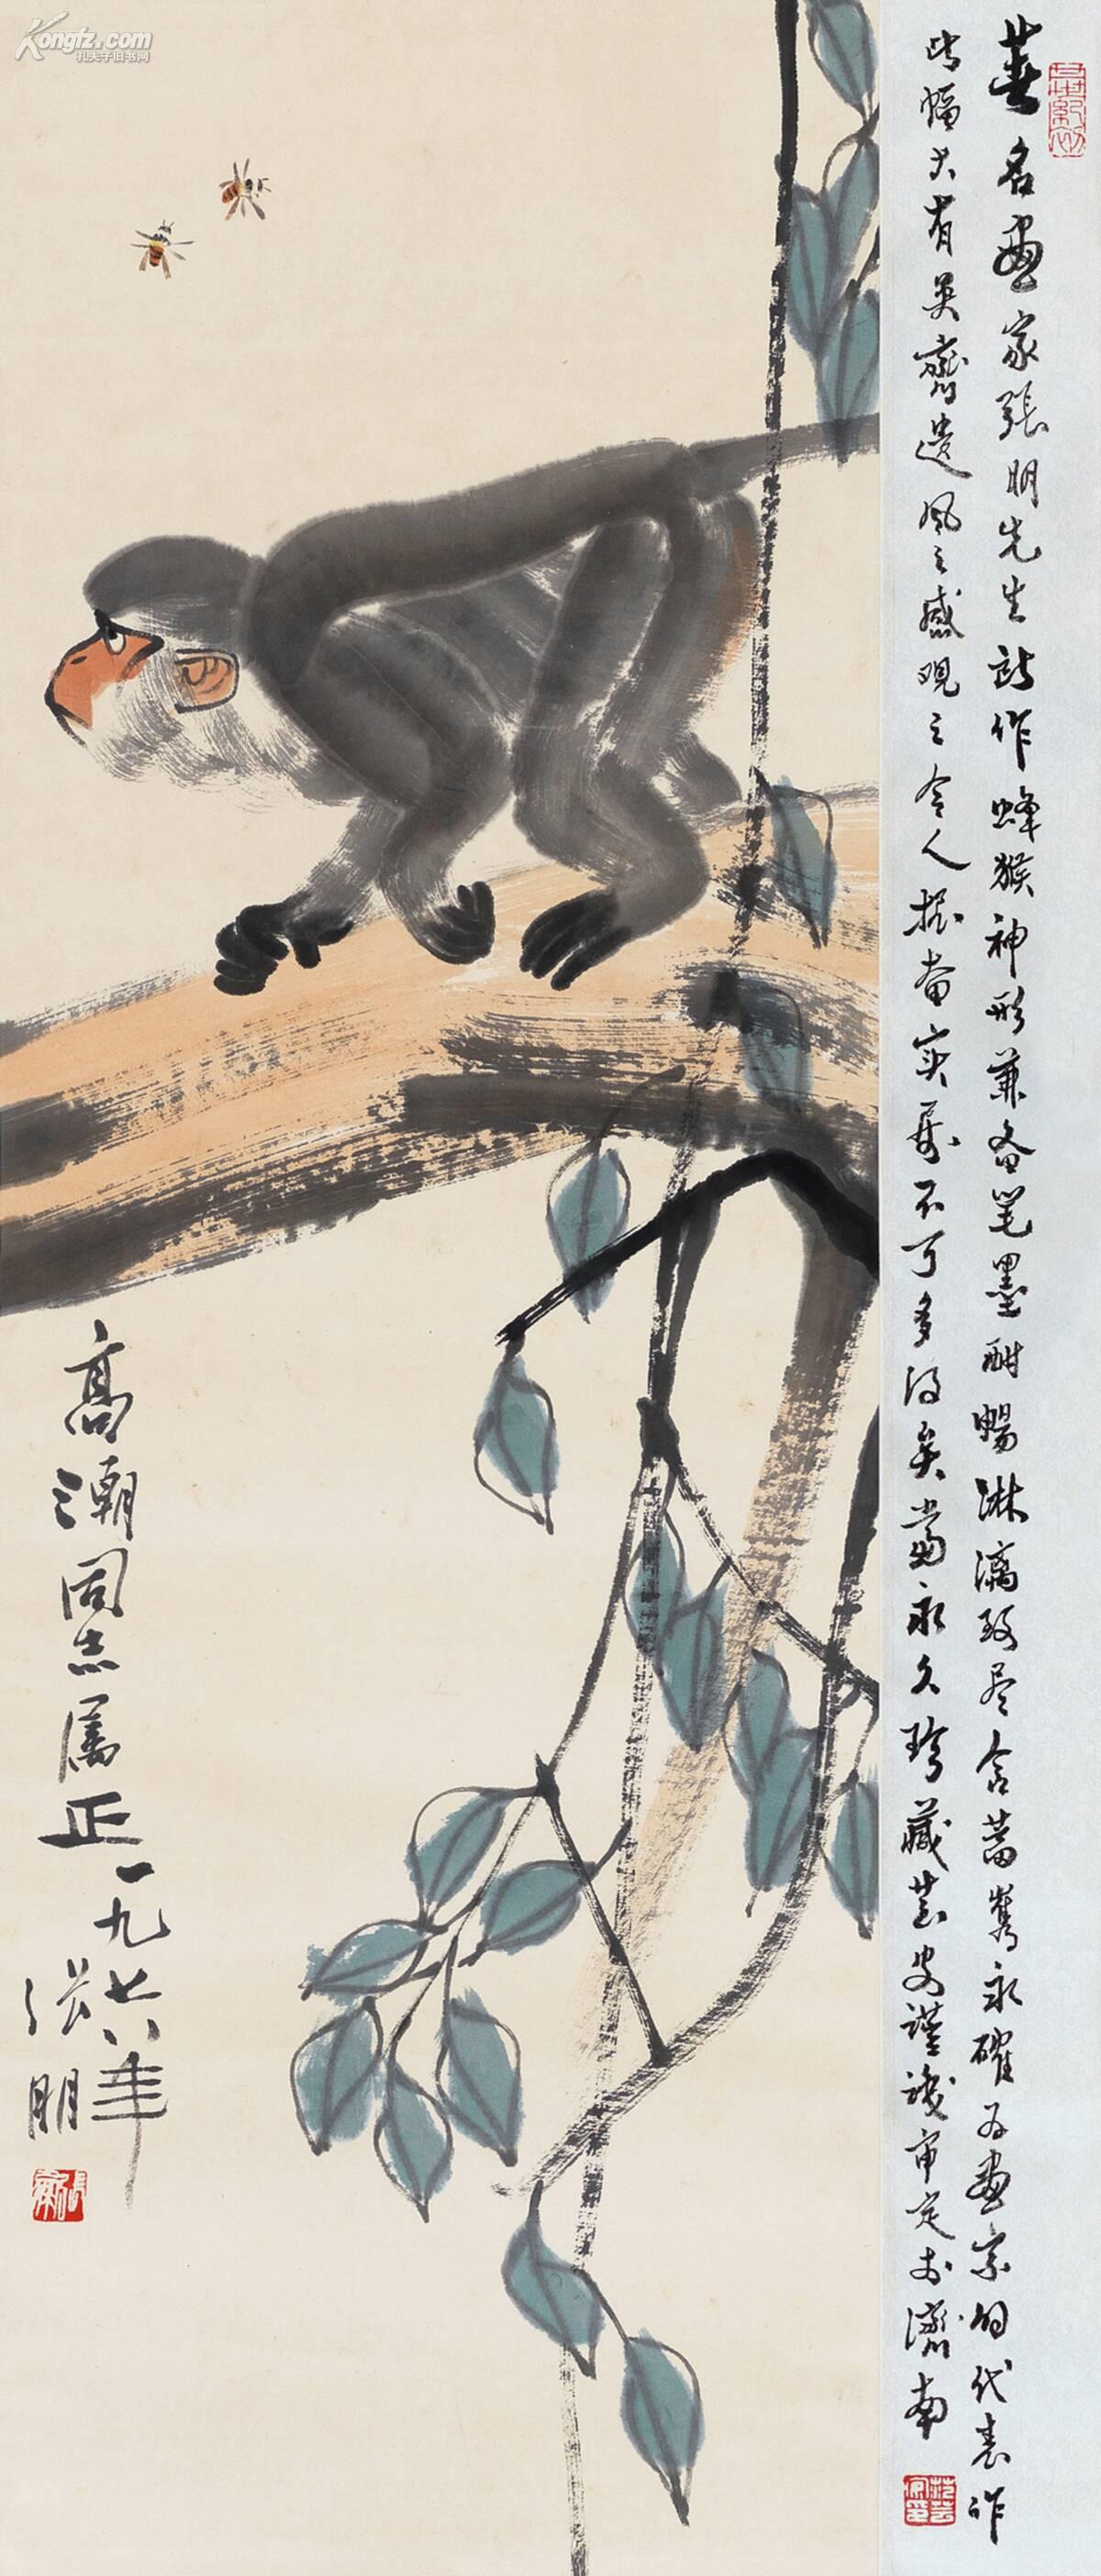 Kongfz.com
孔夫子旧书网
著名画家张朋先生所作蜂猴神形兼备笔墨酣畅淋漓致尽含蓄隽永确为画宗的代表作
此幅大有吴齐遗风之感观之令人振奋实属不可多得矣当永久珍藏
谨识审定于济南
高潮同志属正
一九七八年
张朋